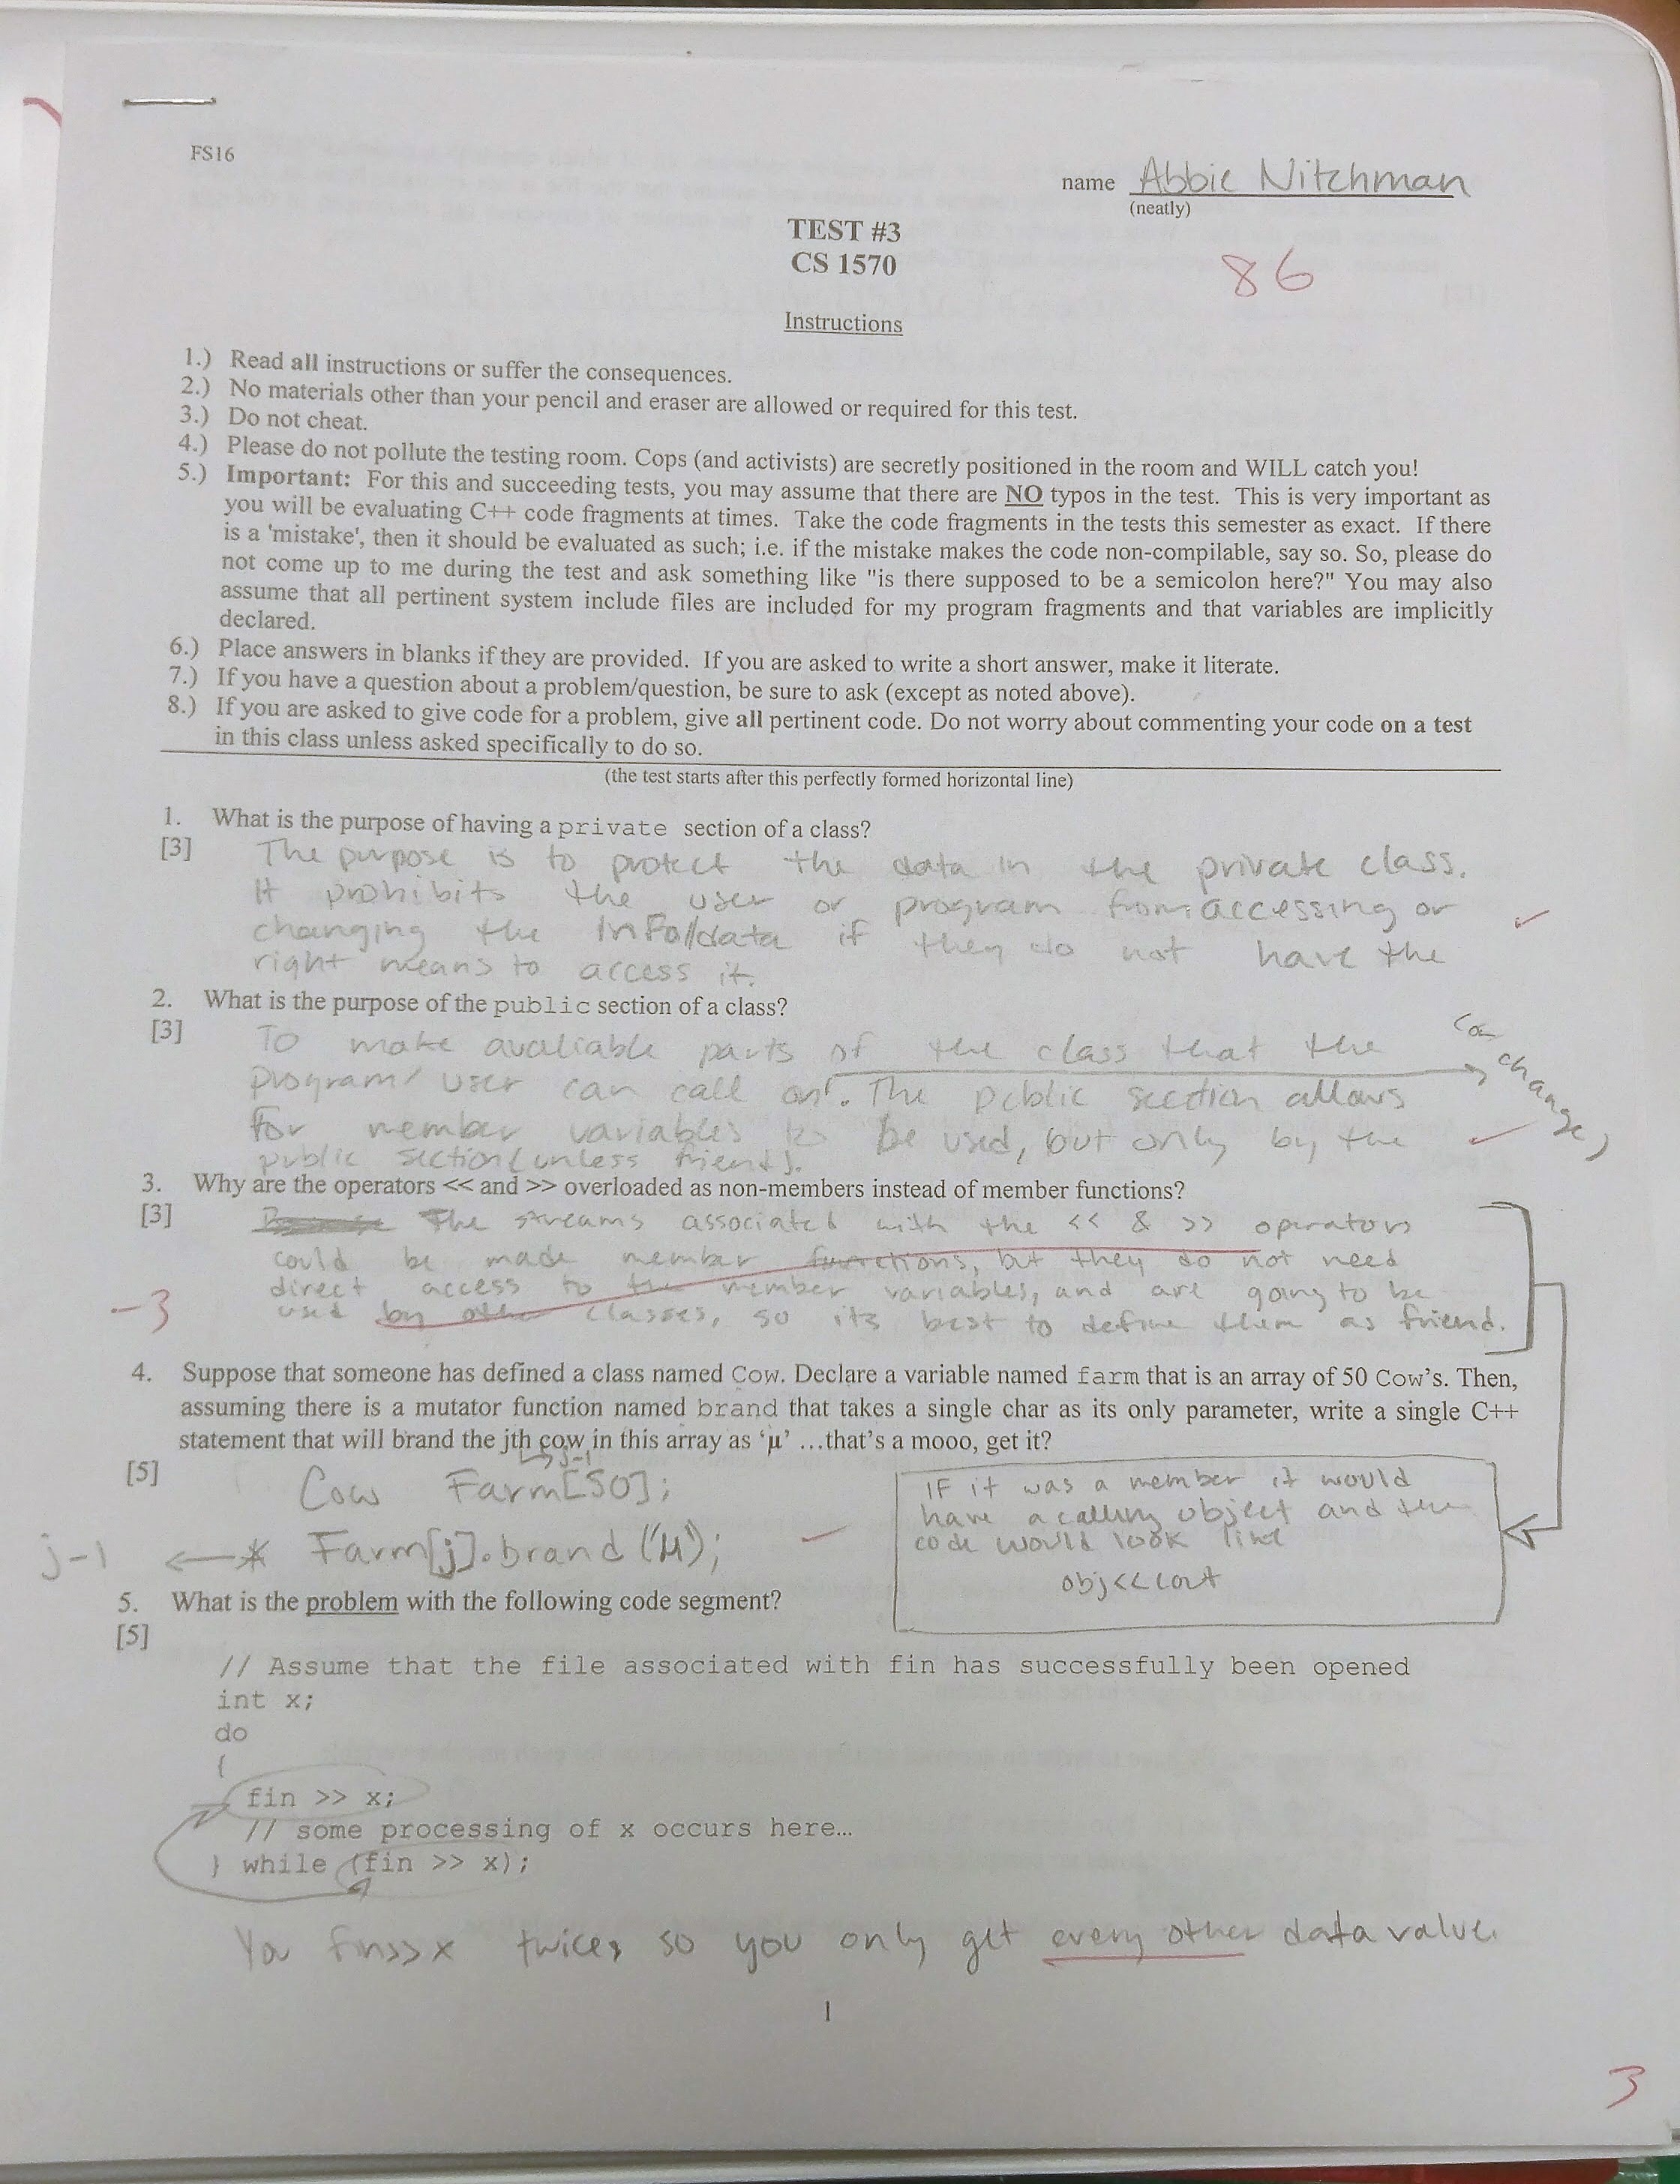 FS16
name Abbie Nitchman
(neatly)
TEST #3
CS 1570
86
Instructions
1.) Read all instructions or suffer the consequences.
2.) No materials other than your pencil and eraser are allowed or required for this test.
3.) Do not cheat.
4.) Please do not pollute the testing room. Cops (and activists) are secretly positioned in the room and WILL catch you!
5.) Important: For this and succeeding tests, you may assume that there are NO typos in the test. This is very important as
you will be evaluating C++ code fragments at times. Take the code fragments in the tests this semester as exact. If there
is a 'mistake', then it should be evaluated as such; i.e. if the mistake makes the code non-compilable, say so. So, please do
not come up to me during the test and ask something like "is there supposed to be a semicolon here?" You may also
assume that all pertinent system include files are included for my program fragments and that variables are implicitly
declared.
6.) Place answers in blanks if they are provided. If you are asked to write a short answer, make it literate.
7.) If you have a question about a problem/question, be sure to ask (except as noted above).
8.) If you are asked to give code for a problem, give all pertinent code. Do not worry about commenting your code on a test
in this class unless asked specifically to do so.
(the test starts after this perfectly formed horizontal line)
1. What is the purpose of having a private section of a class?
[3] The purpose is to protect the data in the private class.
It prohibits the user or program from accessing or
changing the info/data if they do not have the
right means to access it.
2. What is the purpose of the public section of a class?
[3] To make avaliable parts of the class that the
program/user can call on. The public section allows
for member variables to be used, but only by the
public section (unless friend).
can change)
3. Why are the operators << and >> overloaded as non-members instead of member functions?
[3] The streams associated with the << & >> operators
could be made member functions, but they do not need
direct access to the member variables, and are going to be
used by other classes, so its best to define them as friend.
-3
4. Suppose that someone has defined a class named Cow. Declare a variable named farm that is an array of 50 Cow's. Then,
assuming there is a mutator function named brand that takes a single char as its only parameter, write a single C++
statement that will brand the jth cow in this array as ‘µ’ …that’s a mooo, get it?
j-1
[5] Cow Farm[50];
j-1 ←* Farm[j].brand('µ');
IF it was a member it would
have a calling object and the
code would look like
obj<<cout
5. What is the problem with the following code segment?
[5]
// Assume that the file associated with fin has successfully been opened
int x;
do
{
fin >> x;
// some processing of x occurs here…
} while (fin >> x);
You fin>>x twice, so you only get every other data value.
1
3